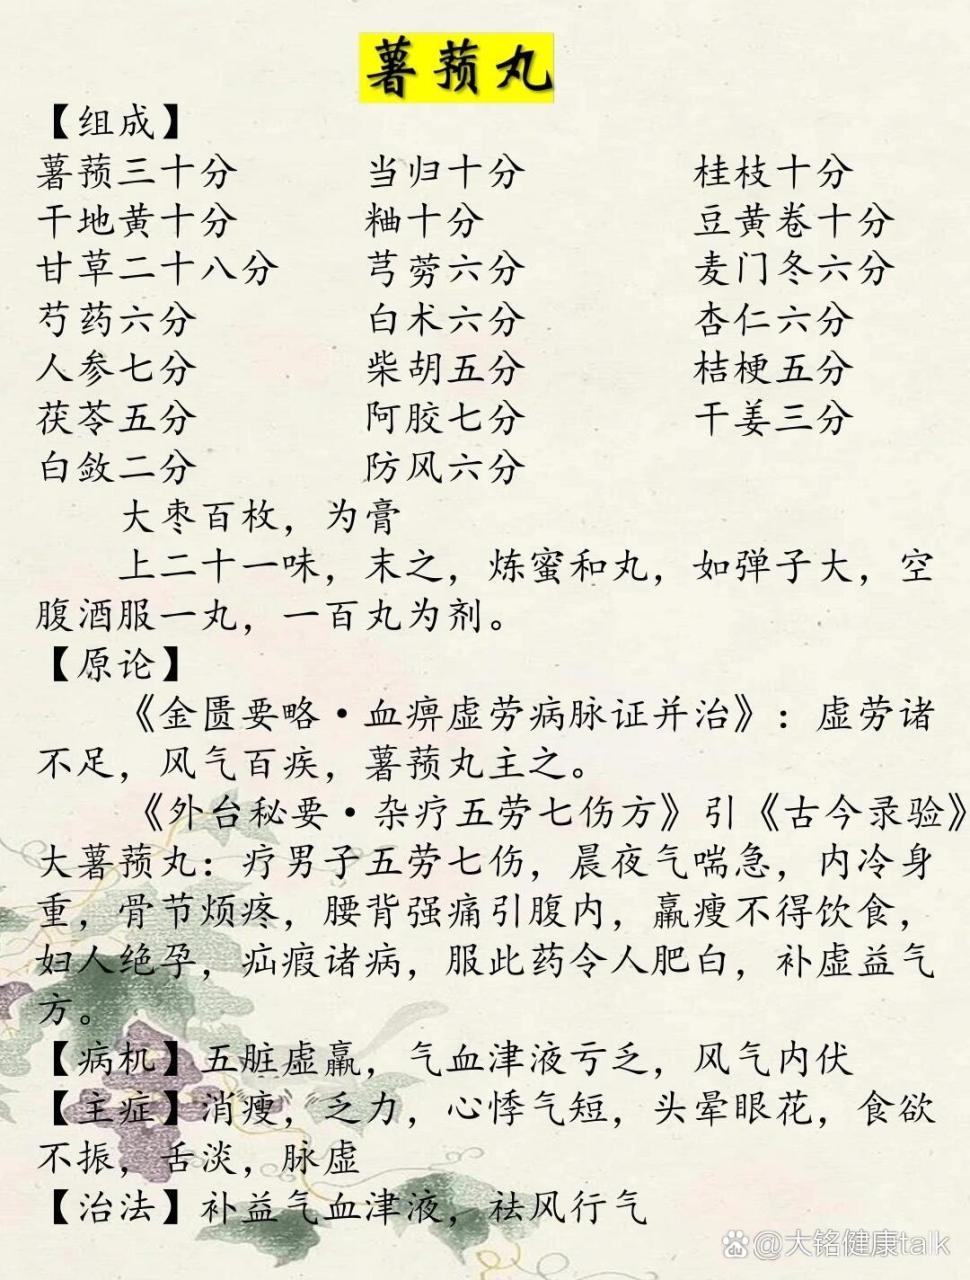 薯蓣丸
【组成】
薯蓣三十分 当归十分 桂枝十分
干地黄十分 粬十分 豆黄卷十分
甘草二十八分 芎䓖六分 麦门冬六分
芍药六分 白术六分 杏仁六分
人参七分 柴胡五分 桔梗五分
茯苓五分 阿胶七分 干姜三分
白敛二分 防风六分
大枣百枚，为膏
上二十一味，末之，炼蜜和丸，如弹子大，空
腹酒服一丸，一百丸为剂。
【原论】
《金匮要略·血痹虚劳病脉证并治》：虚劳诸
不足，风气百疾，薯蓣丸主之。
《外台秘要·杂疗五劳七伤方》引《古今录验》
大薯蓣丸：疗男子五劳七伤，晨夜气喘急，内冷身
重，骨节烦疼，腰背强痛引腹内，羸瘦不得饮食，
妇人绝孕，疝瘕诸病，服此药令人肥白，补虚益气
方。
【病机】五脏虚羸，气血津液亏乏，风气内伏
【主症】消瘦，乏力，心悸气短，头晕眼花，食欲
不振，舌淡，脉虚
【治法】补益气血津液，祛风行气
@大铭健康talk